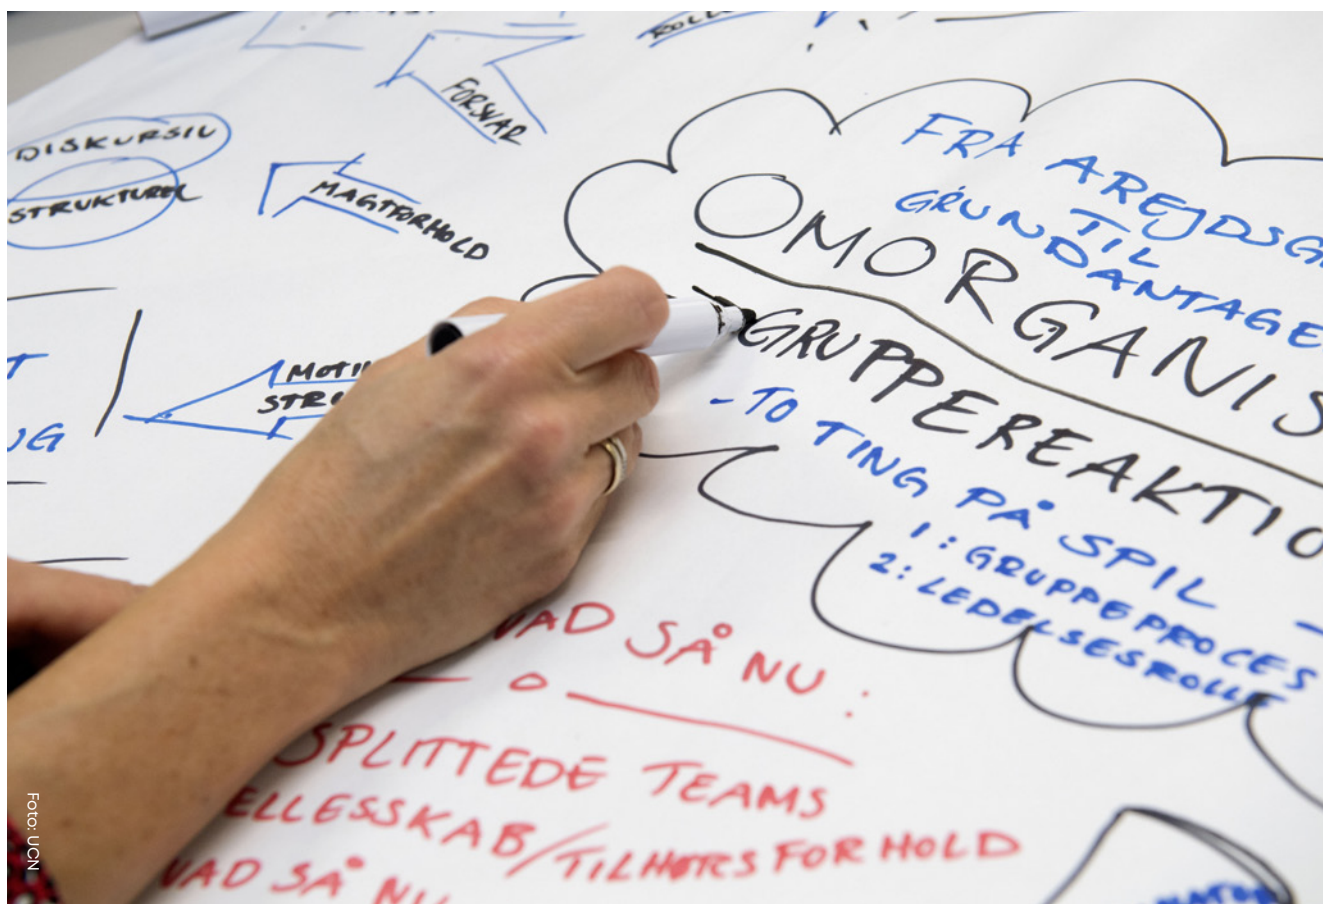 FORSVAR
DISKURSIV
STRUKTUREL
MAGTFORHOLD
FRA AREJDSG
TIL
GRUNDANTAGE
OMORGANIS
GRUPPEREAKTIO
- TO TING PÅ SPIL -
1: GRUPPEPROCES
2: LEDELSESROLLE
MOTI
STR
T
NG
VAD SÅ NU :
SPLITTEDE TEAMS
ELLESSKAB/TILHØRSFORHOLD
VAD SÅ NU
Foto: UCN